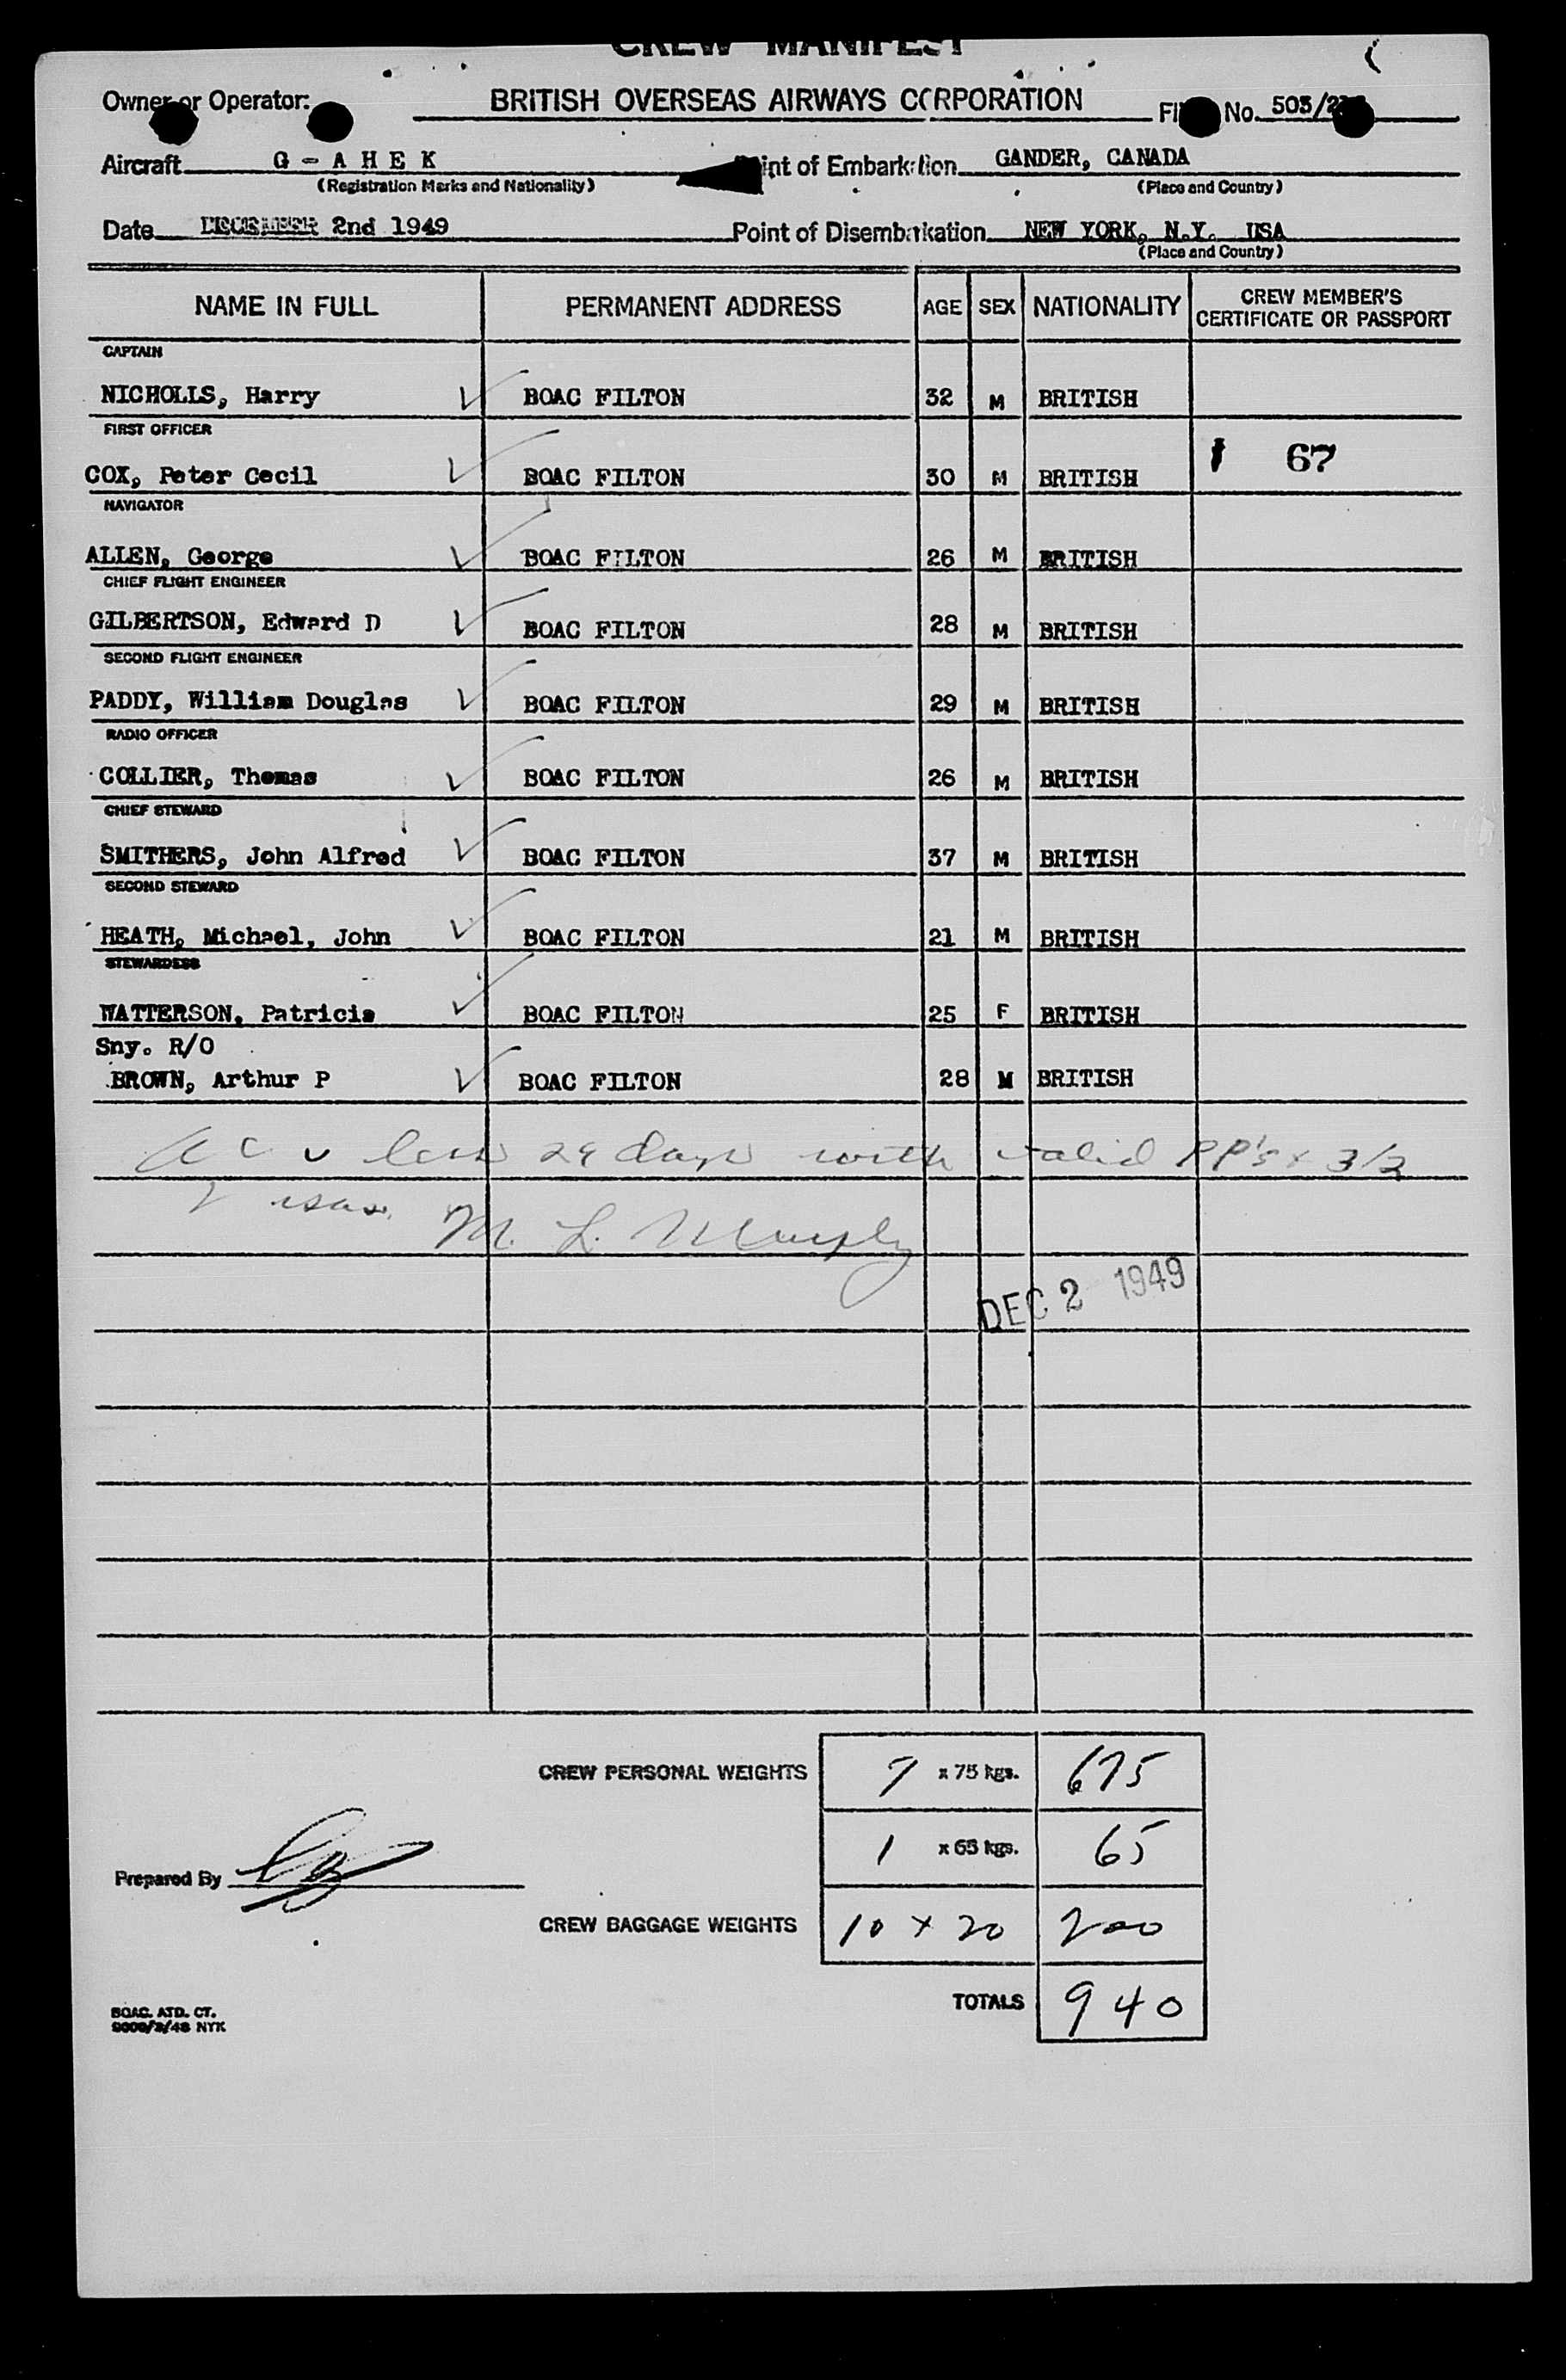 CREW MANIFEST
Owner or Operator: BRITISH OVERSEAS AIRWAYS CORPORATION No. 503/
Aircraft G - A H E K Point of Embarkation GANDER, CANADA
(Registration Marks and Nationality) (Place and Country)
Date DECEMBER 2nd 1949 Point of Disembarkation NEW YORK, N.Y. USA
(Place and Country)
NAME IN FULL PERMANENT ADDRESS AGE SEX NATIONALITY CREW MEMBER'S CERTIFICATE OR PASSPORT
CAPTAIN
NICHOLLS, Harry BOAC FILTON 32 M BRITISH
FIRST OFFICER
67
COX, Peter Cecil BOAC FILTON 30 M BRITISH
NAVIGATOR
ALLEN, George BOAC FILTON 26 M BRITISH
CHIEF FLIGHT ENGINEER
GILBERTSON, Edward D BOAC FILTON 28 M BRITISH
SECOND FLIGHT ENGINEER
PADDY, William Douglas BOAC FILTON 29 M BRITISH
RADIO OFFICER
COLLIER, Thomas BOAC FILTON 26 M BRITISH
CHIEF STEWARD
SMITHERS, John Alfred BOAC FILTON 37 M BRITISH
SECOND STEWARD
HEATH, Michael, John BOAC FILTON 21 M BRITISH
STEWARDESS
WATTERSON, Patricia BOAC FILTON 25 F BRITISH
Sny. R/O
BROWN, Arthur P BOAC FILTON 28 M BRITISH
less 29 days with valid PP's & 3/2
Visas. M. L. Murphy
DEC 2 1949
CREW PERSONAL WEIGHTS 9 x 75 kgs. 675
1 x 65 kgs. 65
Prepared By
CREW BAGGAGE WEIGHTS 10 x 20 200
TOTALS 940
BOAC. ATD. CT.
9000/3/48 NYK